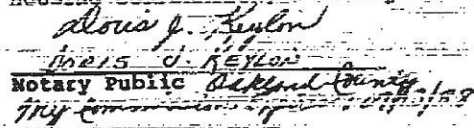 Doris J. Keylon
DORIS J. KEYLON
Notary Public Oakland County
My Commission